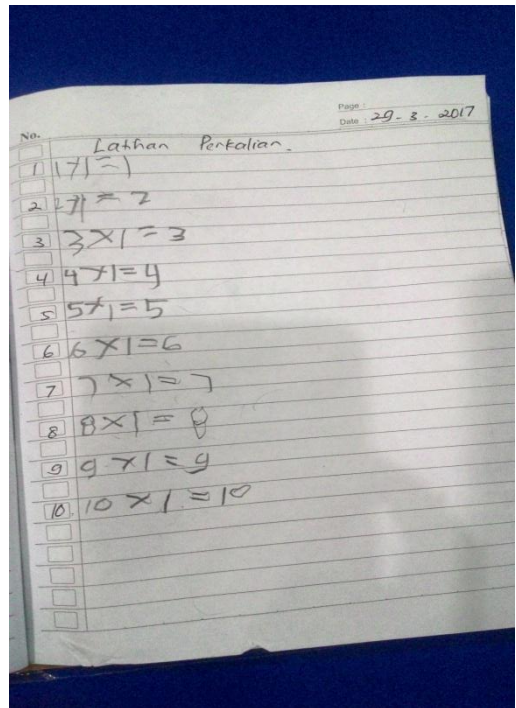 Page :
Date : 29 - 3 - 2017
No.
Latihan Perkalian.
1 1 x 1 = 1
2 2 x 1 = 2
3 3 x 1 = 3
4 4 x 1 = 4
5 5 x 1 = 5
6 6 x 1 = 6
7 7 x 1 = 7
8 8 x 1 = 8
9 9 x 1 = 9
10. 10 x 1 = 10